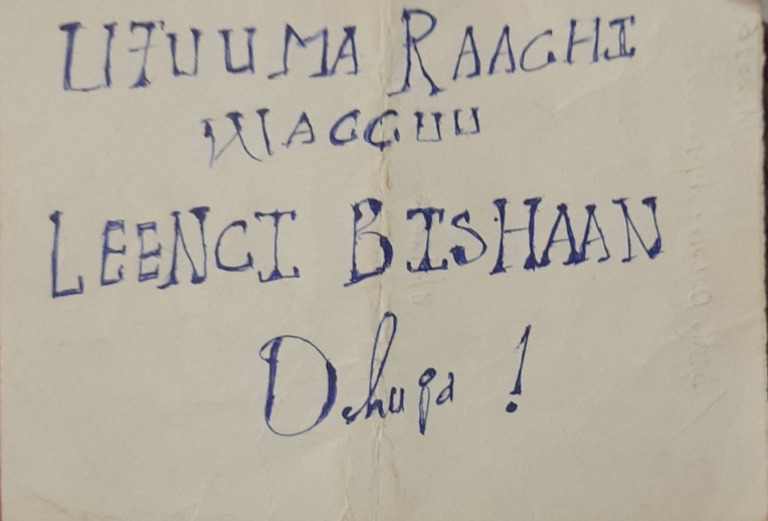 UTUUMA RAAGHI
WAGGUU
LEENCI BISHAAN
Dhuga !